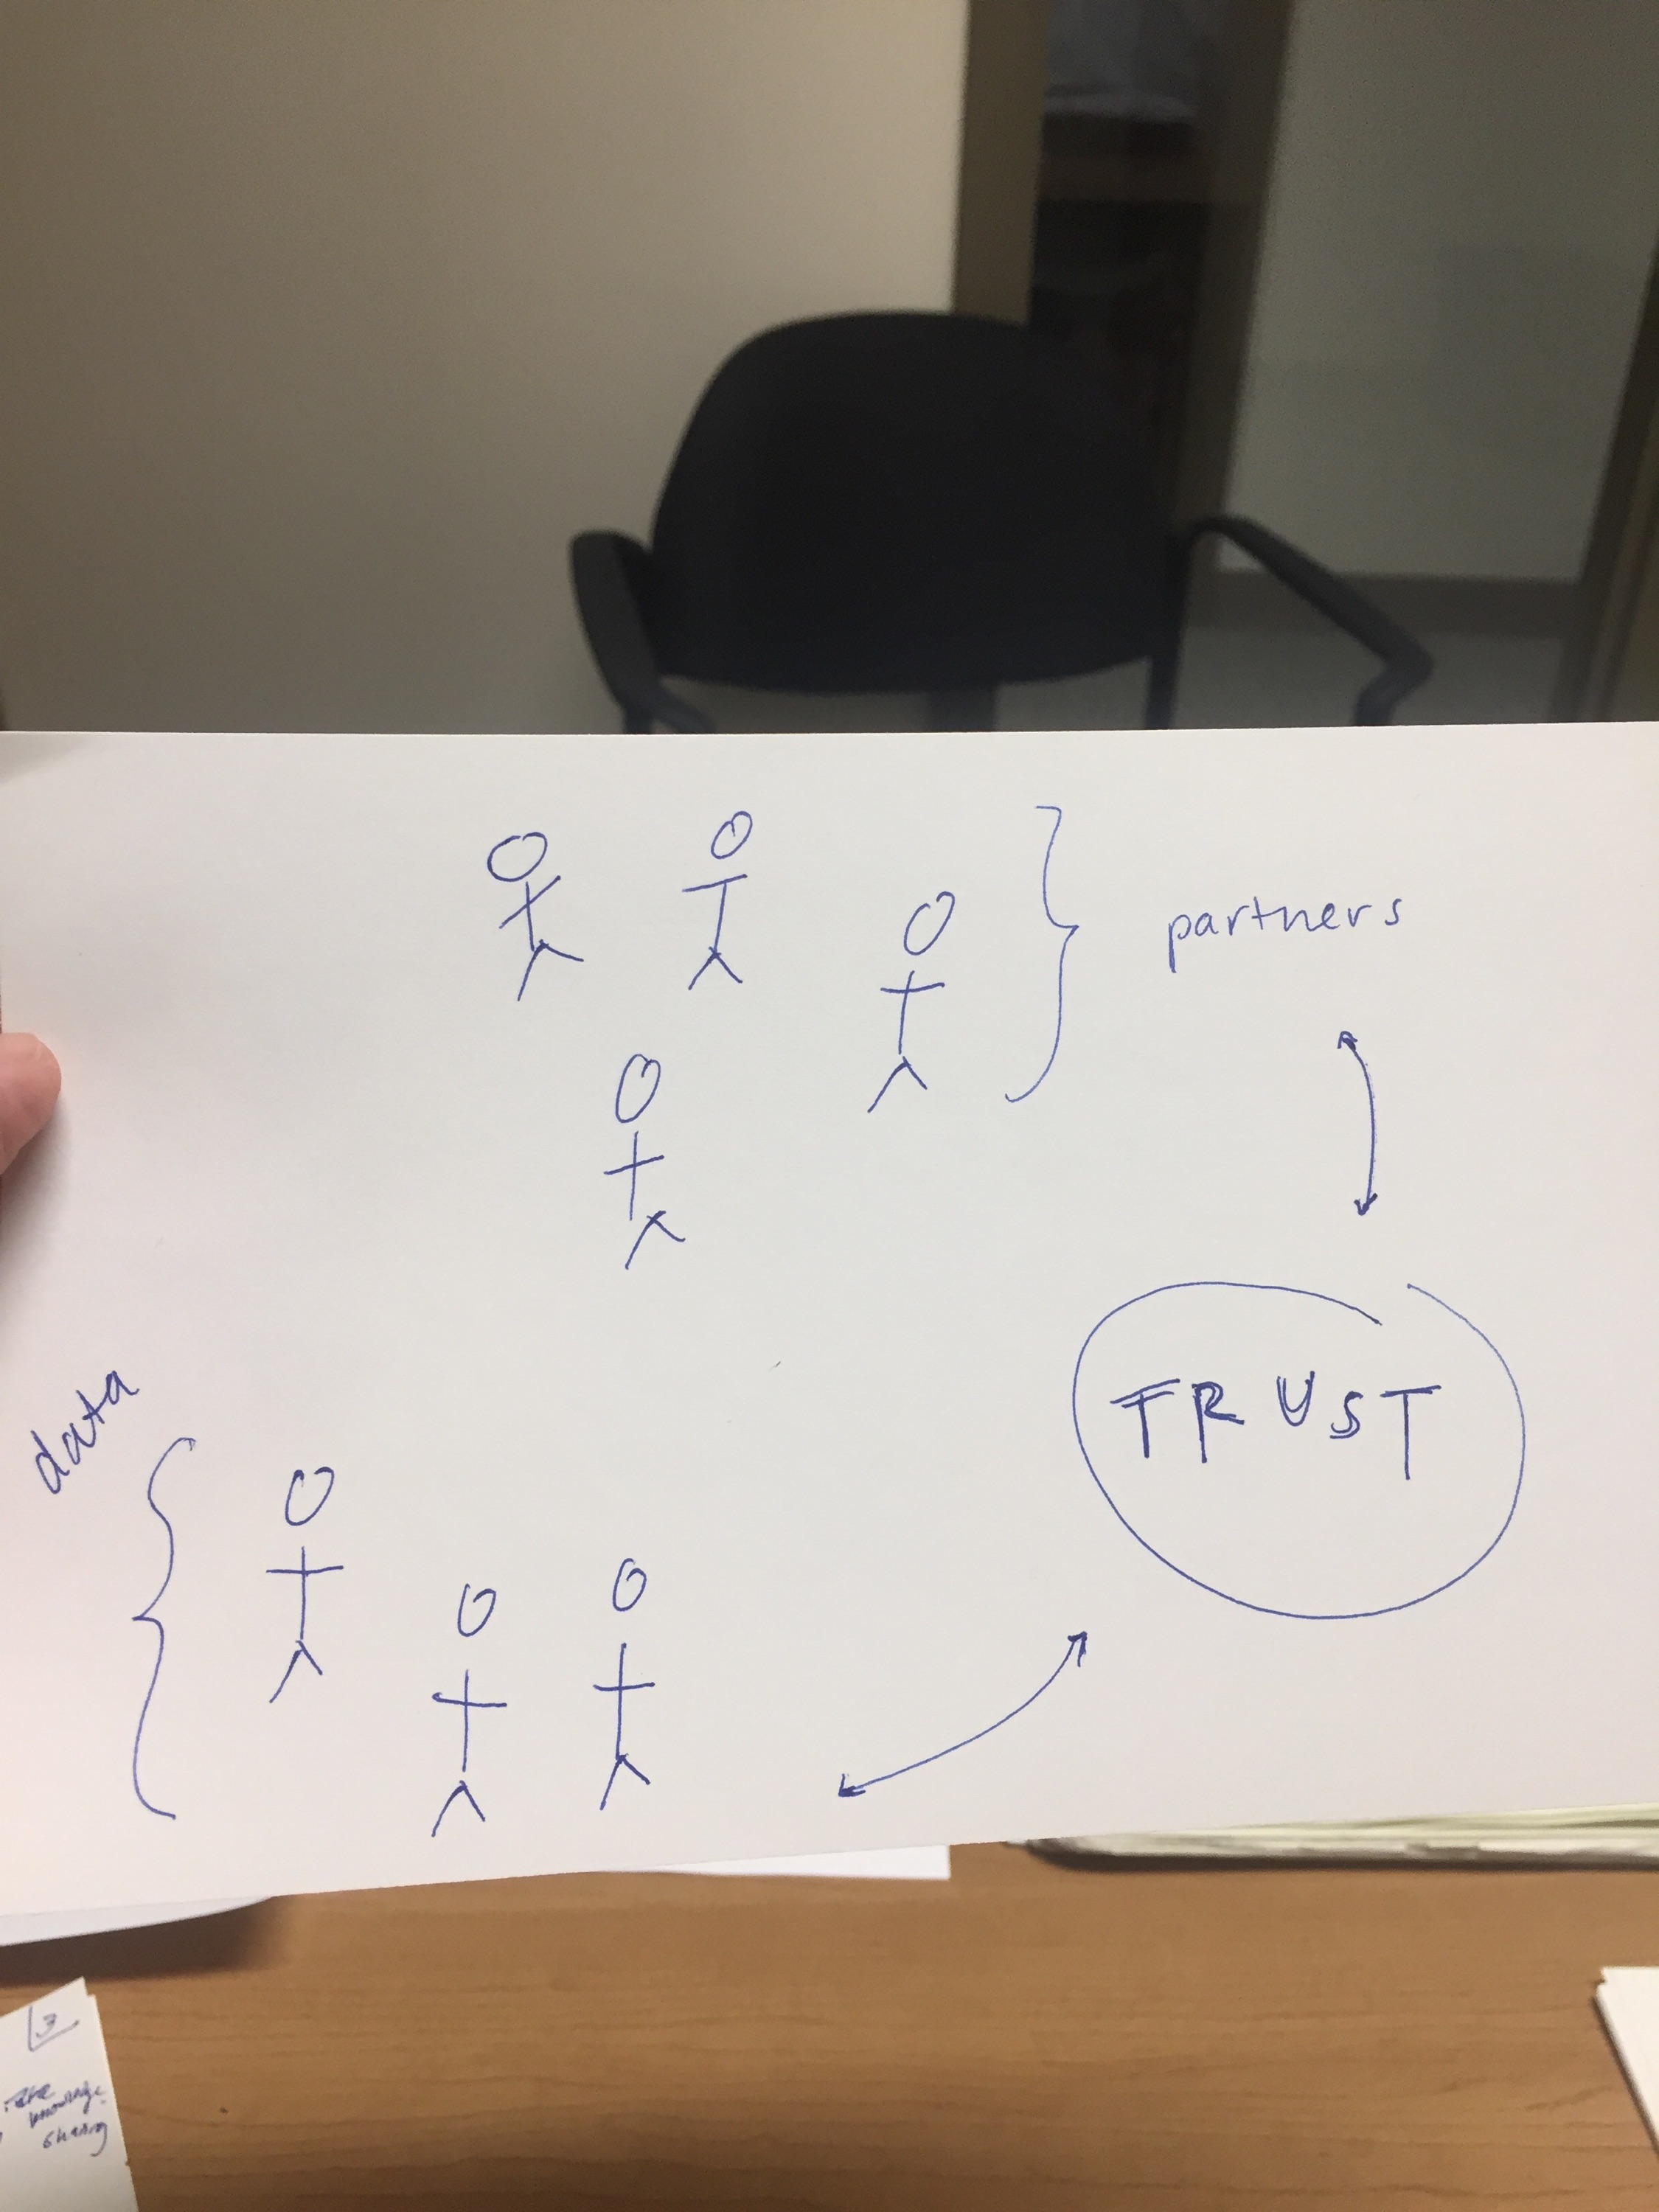 partners
TRUST
data
3
knowledge
sharing